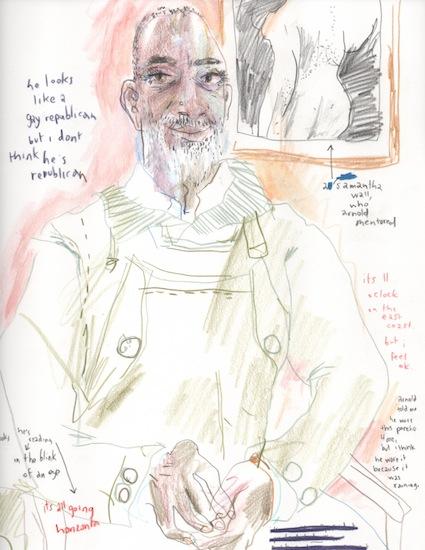 he looks
like a
gay republican
but i dont
think he's
republican
samantha
wall,
who
arnold
mentored
its 11
oclock
on the
east
coast
but i
feel
ok
arnold
told me
he wore
this poncho
4 me,
but i think
he wore it
because it
was
raining.
he's
reading
in the blink
of an eye
its all going
horizontal